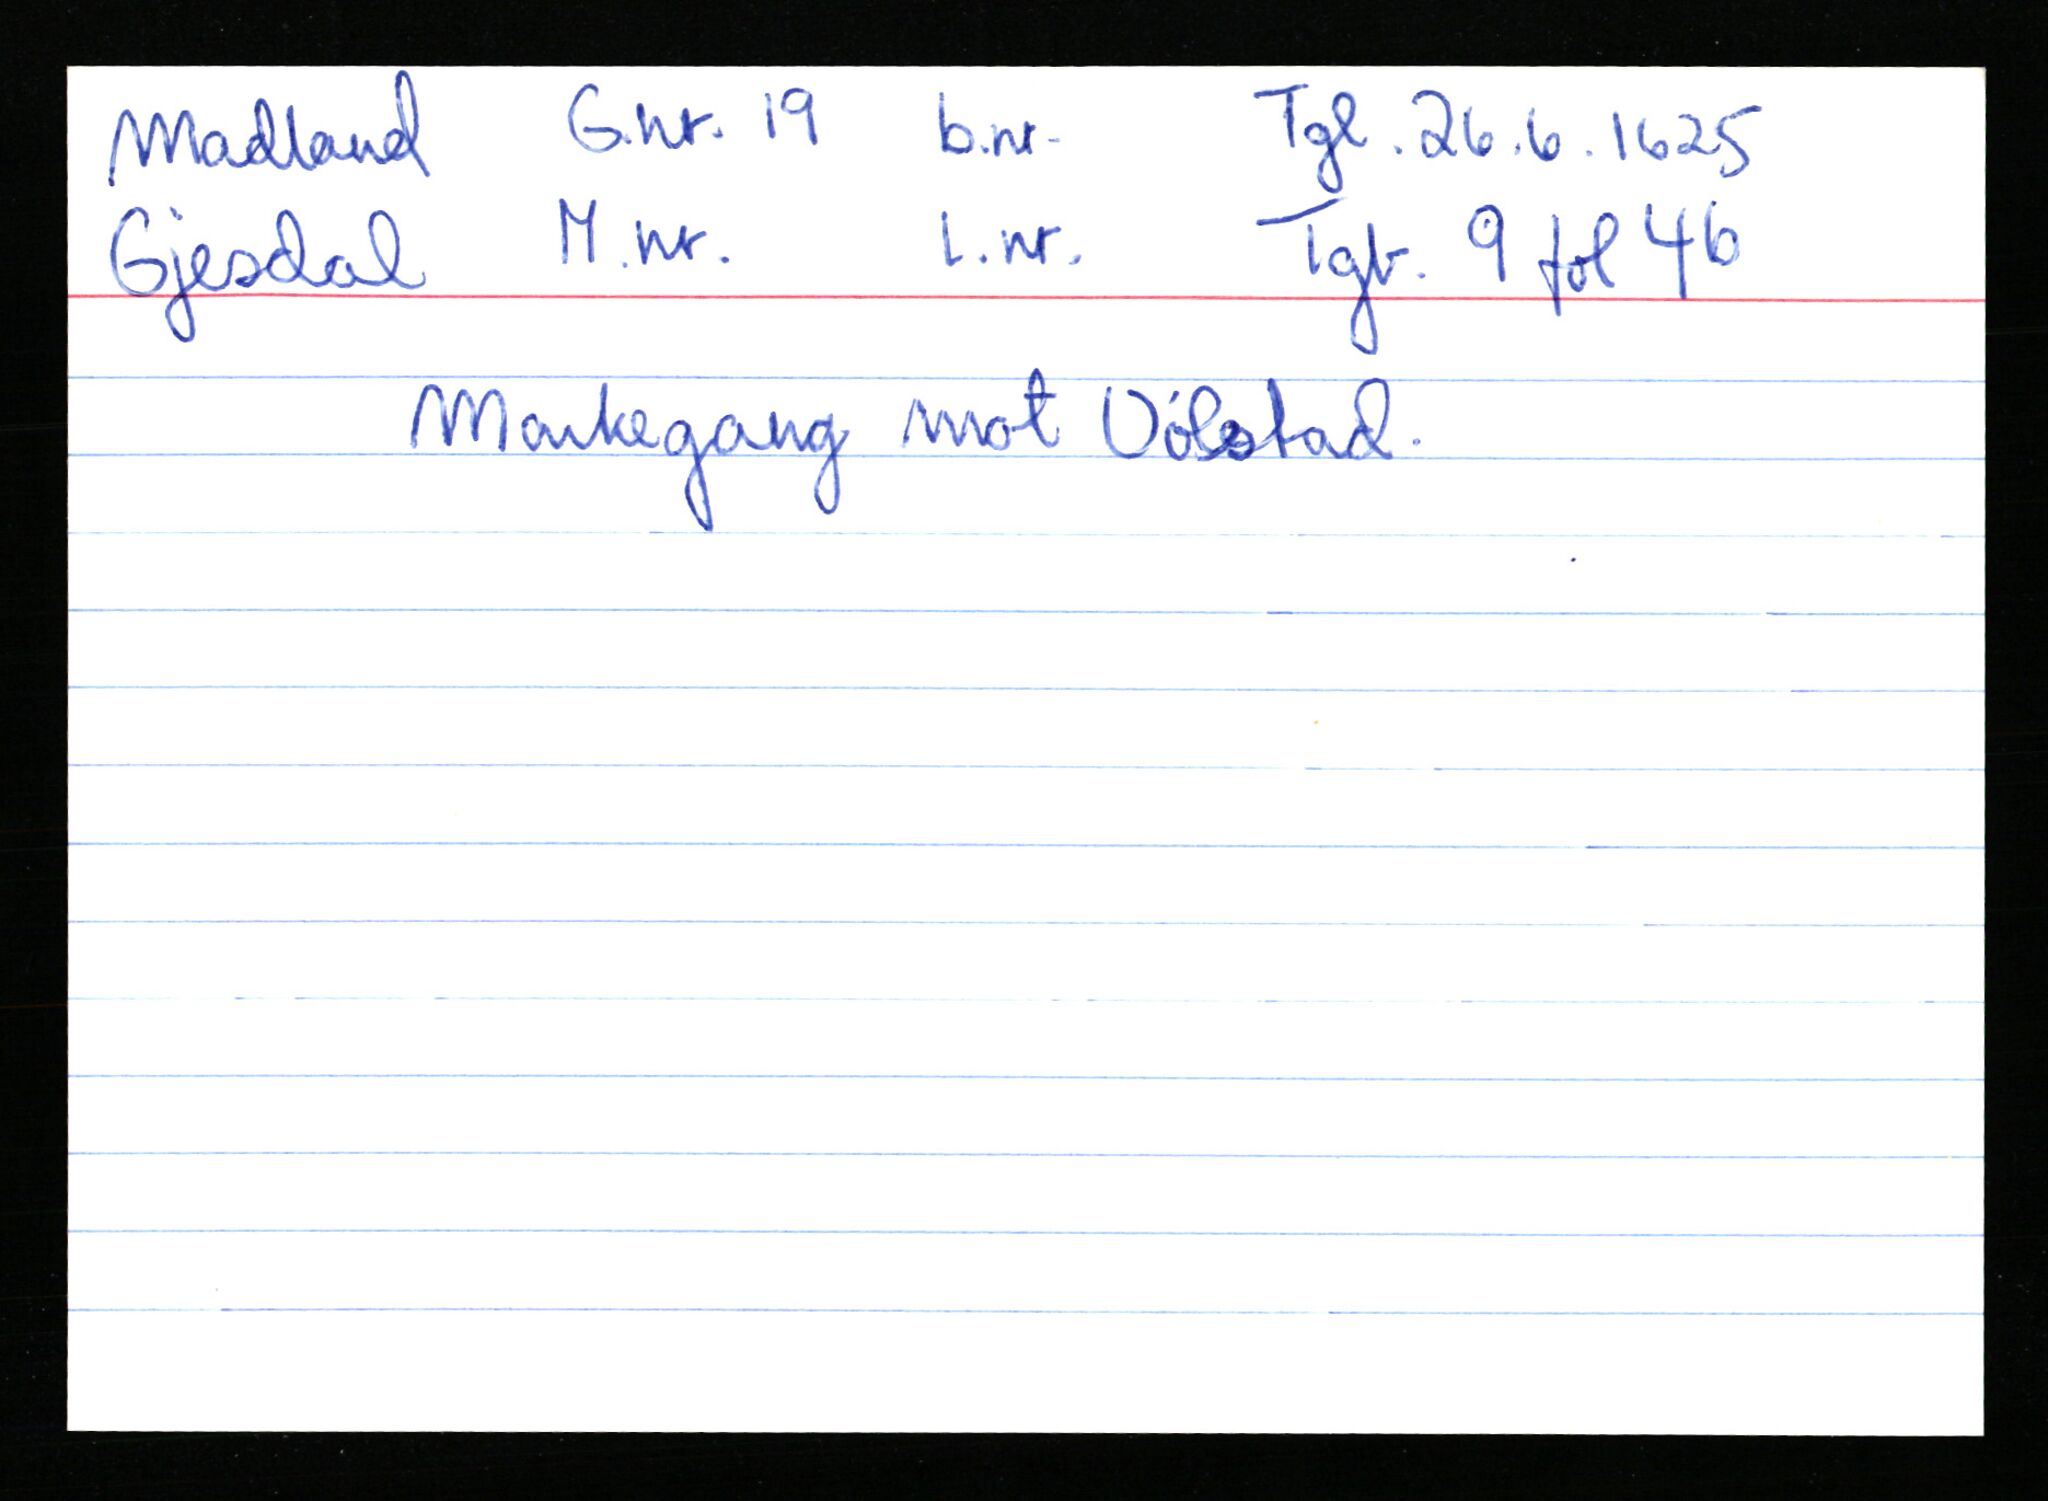 Madland G.nr. 19 b.nr. Tgl. 26.6.1625
Gjesdal M.nr. L.nr. Tgb. 9 fol 46
Markegang mot Vølstad.